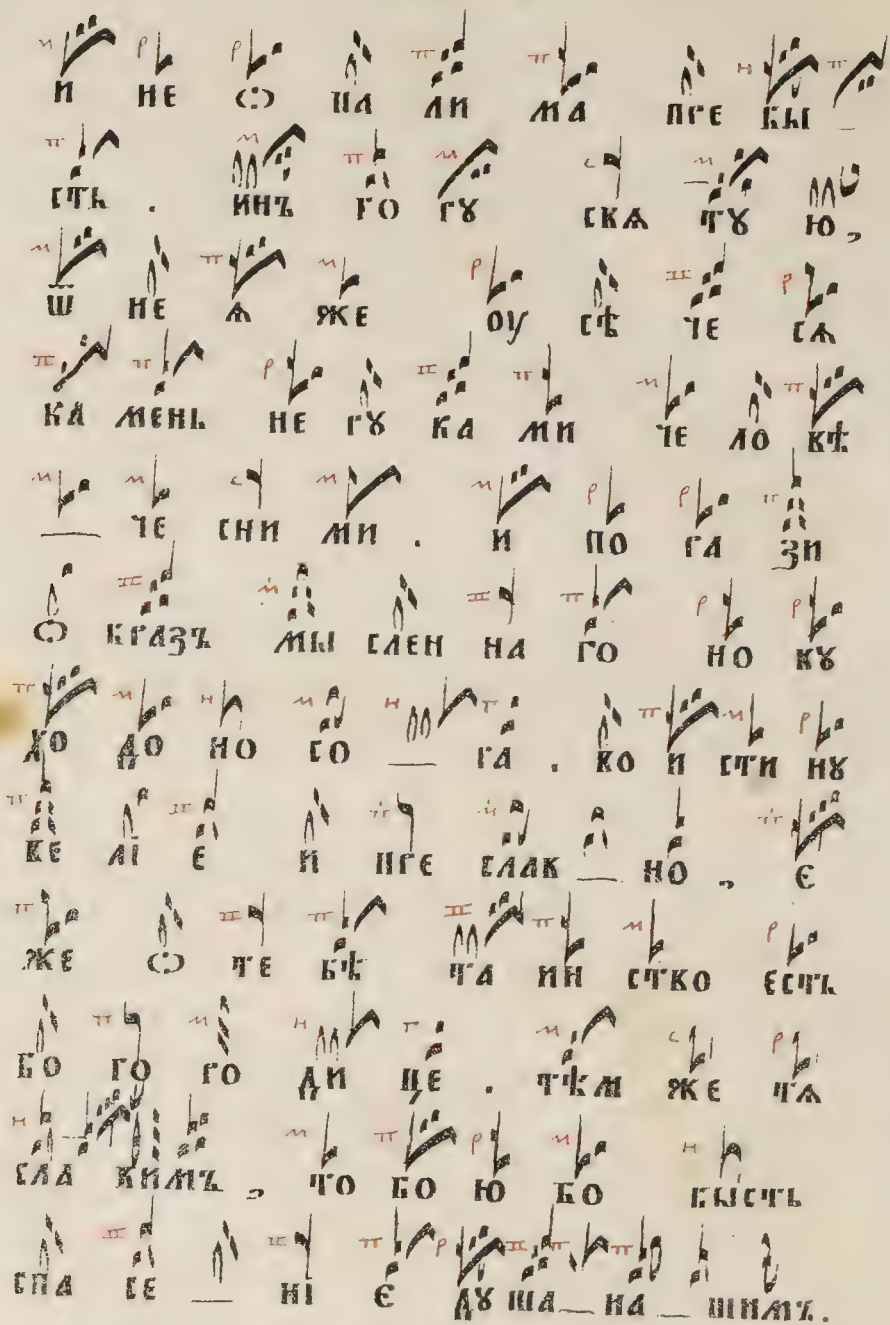 И НЕ Ѻ ПА ЛИ МА ПРЕ БЫ _
СТЬ . ИНЪ ГО РꙊ СВѦ ТꙊ Ю ,
Ѿ НЕ Ѧ ЖЕ ОУ СѢ ЧЕ СѦ
КА МЕНЬ НЕ РꙊ КА МИ ЧЕ ЛО ВѢ
_ ЧЕ СКИ МИ . И ПО РА ЗИ
Ѻ БРАЗЪ МЫ СЛЕН НА ГО НО ВꙊ
ХО ДО НО СО _ РА . ВО И СТИ НꙊ
ВЕ ЛІ Е И ПРЕ СЛАВ _ НО , Є
ЖЕ Ѻ ТЕ БѢ ТА ИН СТВО ЕСТЬ
БО ГО РО ДИ ЦЕ . ТѢМ ЖЕ ТѦ
СЛА ВИМЪ , ТО БО Ю БО БЫСТЬ
СПА СЕ _ НІ Є ДꙊ ША _ НА _ ШИМЪ .